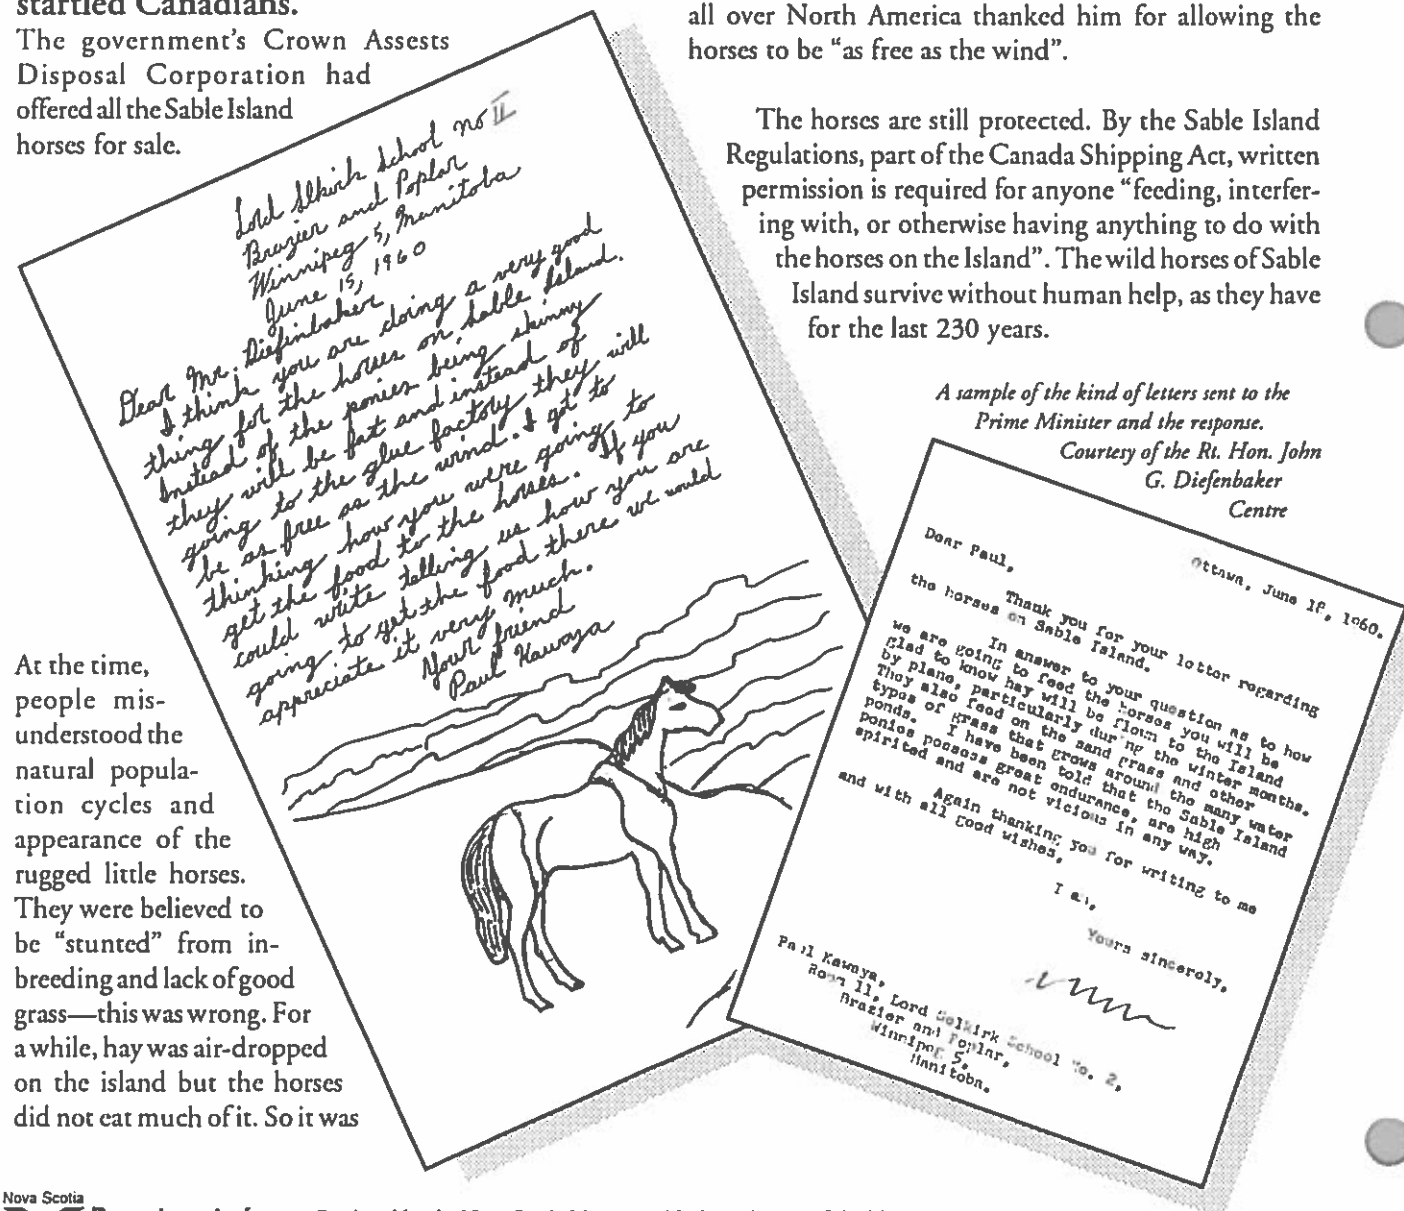 startled Canadians.
The government's Crown Assests
Disposal Corporation had
offered all the Sable Island
horses for sale.
Lord Slkirk School no II
Brazier and Poplar
Winnipeg 5, Manitoba
June 15, 1960
Dear Mr. Diefinbaker
I think you are doing a very good
thing for the horses on Sable Island.
Instead of the ponies being skinny
they will be fat and instead of
going to the glue factory they will
be as free as the wind. I got to
thinking how you were going to
get the food to the horses. If you
could write telling us how you are
going to get the food there we would
appreciate it very much.
Your friend
Paul Kawaza
At the time,
people mis-
understood the
natural popula-
tion cycles and
appearance of the
rugged little horses.
They were believed to
be "stunted" from in-
breeding and lack of good
grass—this was wrong. For
a while, hay was air-dropped
on the island but the horses
did not eat much of it. So it was
all over North America thanked him for allowing the
horses to be "as free as the wind".
The horses are still protected. By the Sable Island
Regulations, part of the Canada Shipping Act, written
permission is required for anyone "feeding, interfer-
ing with, or otherwise having anything to do with
the horses on the Island". The wild horses of Sable
Island survive without human help, as they have
for the last 230 years.
A sample of the kind of letters sent to the
Prime Minister and the response.
Courtesy of the Rt. Hon. John
G. Diefenbaker
Centre
Ottawa, June 18, 1960.
Dear Paul,
Thank you for your letter regarding
the horses on Sable Island.
In answer to your question as to how
we are going to feed the horses you will be
glad to know hay will be flown to the Island
by plane, particularly during the winter months.
They also feed on the sand grass and other
types of grass that grows around the many water
ponds. I have been told that the Sable Island
ponies possess great endurance, are high
spirited and are not vicious in any way.
Again thanking you for writing to me
and with all good wishes,
I am,
Yours sincerely,
Paul Kawaya,
Room 11, Lord Selkirk School No. 2,
Brazier and Poplar,
Winnipeg 5,
Manitoba.
Nova Scotia